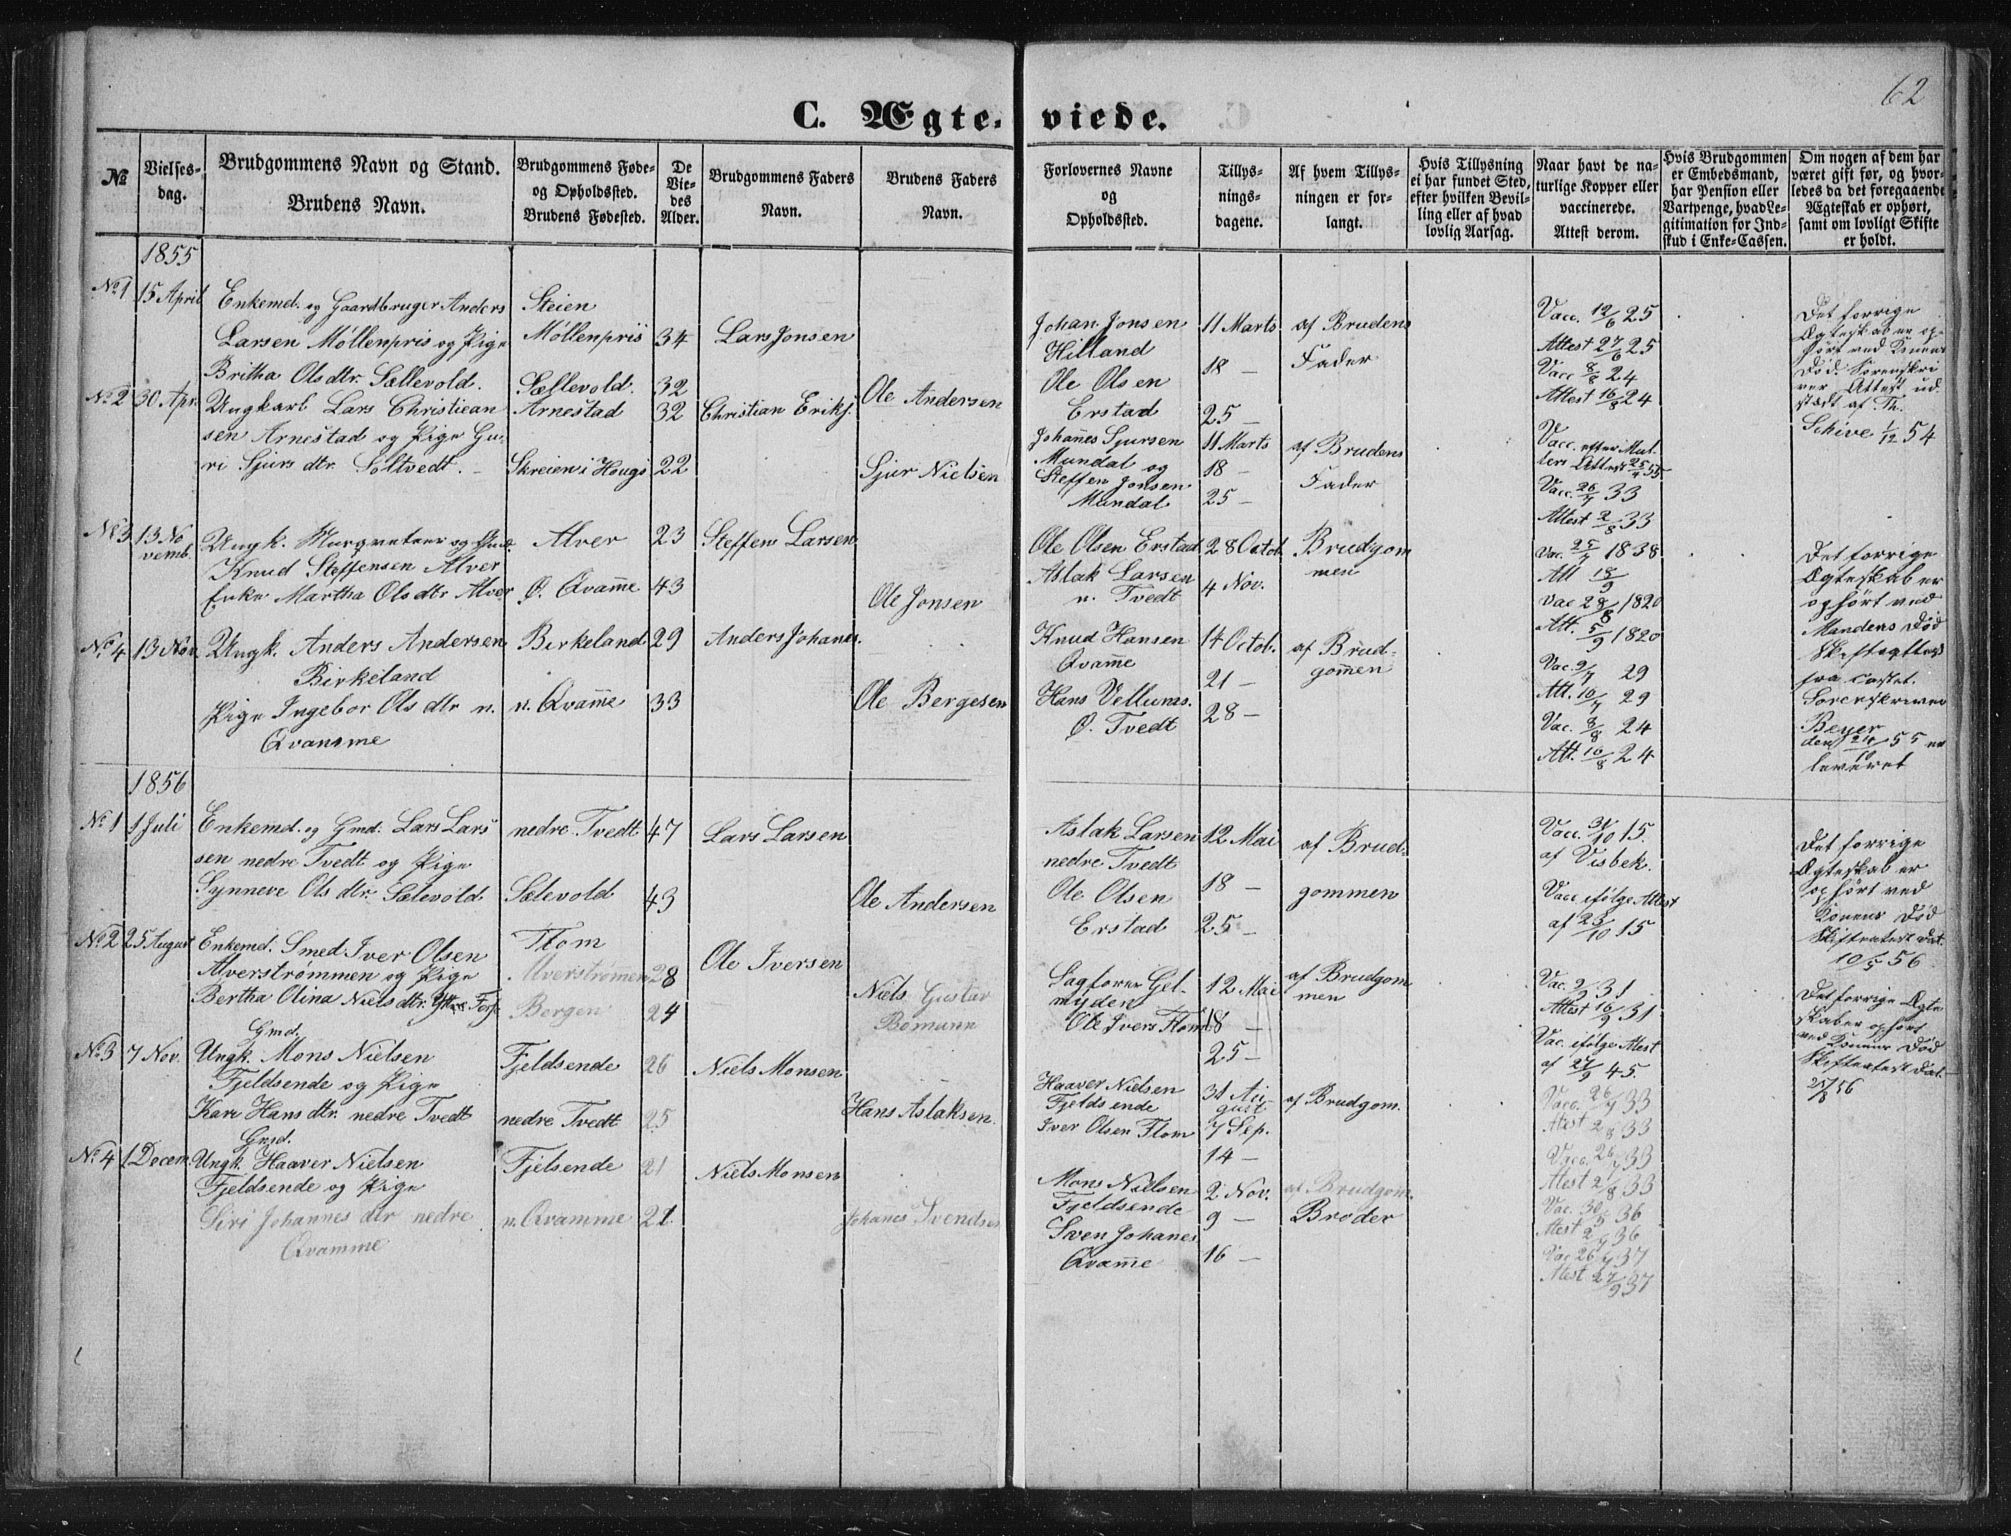 62
C. Ægte- viede.
No
Vielses-
dag.
Brudgommens Navn og Stand.
Brudens Navn.
Brudgommens Føde-
og Opholdssted.
Brudens Fødested.
De
Vie-
des
Alder.
Brudgommens Faders
Navn.
Brudens Faders
Navn.
Forlovernes Navne
og
Opholdssted.
Tillys-
nings-
dagene.
Af hvem Tillys-
ningen er for-
langt.
Hvis Tillysning
ei har fundet Sted,
efter hvilken Bevil-
ling eller af hvad
lovlig Aarsag.
Naar havt de na-
turlige Kopper eller
vaccinerede.
Attest derom.
Hvis Brudgommen
er Embedsmand,
har Pension eller
Vartpenge, hvad Le-
gitimation for Ind-
skud i Enke-Cassen.
Om nogen af dem har
været gift før, og hvor-
ledes da det foregaaende
Ægteskab er ophørt,
samt om lovligt Skifte
er holdt.
1855
No 1
15 April
Enkemd. og Gaardbruger Anders
Larsen Møllenpris og Pige
Britha Olsdtr. Sællevold.
Steien
Møllenpris
Sællevold.
34
32
Lars Jonsen
Ole Andersen
Johan Jonsen
Hilland
Ole Olsen
Erstad
11 Marts
18 —
25 —
af Brudens
Fader
Vacc. 12/6 25
Attest 27/6 25
Vacc 8/8 24
Attest 16/8 24
Det forrige
Ægteskab er op-
hørt ved Konens
Død. Sorenskri
ver Attest ud
stædt af Th.
Schive 1/12 54
No 2
30 Apr.
Ungkarl Lars Christian
sen Arnestad og Pige Gu-
ri Sjurs dtr. Soltvedt. —
Arnestad
Skreien i Hougs
32
22
Christian Eriks.
Sjur Nielsen
Johañes Sjursen
Mundal og
Steffen Jonsen
Mundal
11 Marts
18 —
25 —
af Brudens
Fader
Vacc. efter Mut-
ters Attest 25/4 55
Vacc. 26/7 33
Attest 2/8 33
No 3
13 No
vemb.
Ungk. Murqveteer og
Knud Steffensen Alver
Enke Martha Olsdtr Alver
Alver
Ø. Qvam̃e
23
43
Steffen Larsen
Ole Jonsen
Ole Olsen Erstad
Aslak Larsen
n. Tvedt
28 Octob.
4 Nov.
Brudgom
men
Vac. 25/7 1838
Att 18/9
Vac 28/8 1820
Att. 5/9 1820
Det forrige
Ægteskab er
ophørt ved
Mandens Død
fra
Sorenskriver
Beyer
den 24/10 55 er
leveret
No 4
13 Nov.
Ungk. Anders Andersen
Birkeland
Pige Ingebor Olsdtr n.
Qvamme
Birkeland
n. Qvam̃e
29
33
Anders Johanes.
Ole Bergesen
Knud Hansen
Qvam̃e
Hans Vellums.
Ø. Tvedt
14 Octob.
21 —
28 —
af Brud-
gom̃en
Vac. 9/7 29
Att. 10/7 29
Vac. 8/8 24
Att. 16/8 24
1856
No 1
1 Juli
Enkemd. og Gmd. Lars Lars
sen nedre Tvedt og Pige
Synneve Ols dtr. Sælevold
nedre Tvedt
Sælevold
47
43
Lars Larsen
Ole Andersen
Aslak Larsen
nedre Tvedt
Ole Olsen
Erstad
12 Mai
18 —
25 —
af Brud-
gommen
Vacc. 31/10 15.
af Visbek.
Vacc ifølge Attest
af 23/10 15
Det forrige
Ægteskab er
ophørt ved
Konens Død
Skifteatest dat.
10/5 56
No 2
25 August
Enkemd. Smed Iver Olsen
Alverstrømmen og Pige
Bertha Olina Niels dtr.
Flom
Alverstrømen
Bergen
28
24
Ole Iversen
Niels Gustav
Bomann
Sagfører Gel-
myden
Ole Ivers Flom
12 Mai
18 —
25 —
af Brudgom
men
Vac. 2/9 31
Attest 16/9 31
Vac. ifølge Atest
af 27/9 45.
Det forrige Ægte
skab er ophørt
ved Konens Død
Skifteatest dat.
25/8 56
No 3
7 Nov.
Gmd.
Ungk. Mons Nielsen
Fjeldsende og Pige
Kari Hans dtr. nedre Tvedt
Fjeldsende
nedre Tvedt
26
25
Niels Monsen
Hans Aslaksen.
Haaver Nielsen
Fjeldsende
Iver Olsen Flom
31 Au-
gust
7 Sep.
14 —
af Brudgom.
Vacc. 26/7 33
Atest 2/8 33
Vacc. 26/7 33
Atest 2/8 33
No 4
1 Decem.
Gmd.
Ungk. Haaver Nielsen
Fjeldsende og Pige
Siri Johannes dtr nedre
Qvamme
Fjelsende
n. Qvamme
21
21
Niels Monsen
Johanes Svendsen
Mons Nielsen
Fjeldsende
Sven Johanes
Qvam̃e
2 Nov.
9 —
16 —
af Brudgom.
Broder
Vac. 30/5 36
Atest 2/7 36
Vac 26/7 37
Atest 27/9 37